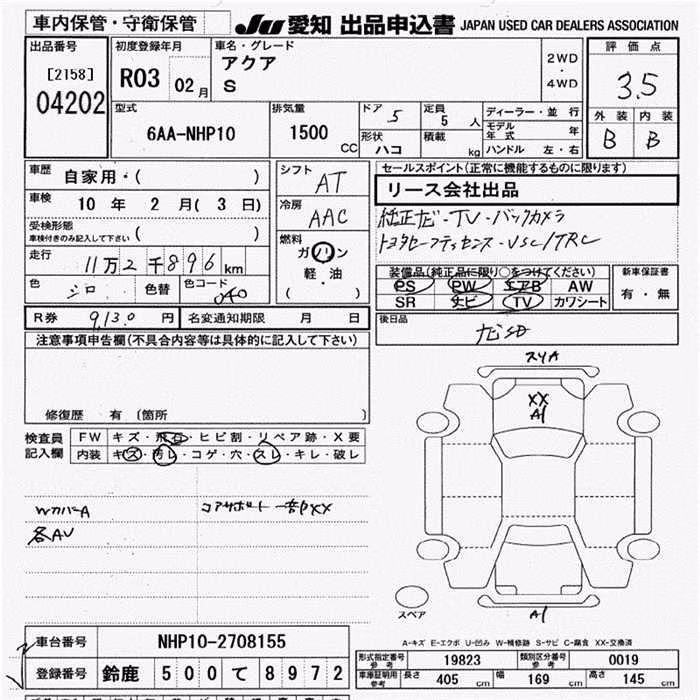 車内保管・守衛保管 JU 愛知 出品申込書 JAPAN USED CAR DEALERS ASSOCIATION
出品番号
[2158]
04202
初度登録年月
R03 02月
車名・グレード
アクア
S
2WD
・
4WD
評価点
3.5
外装 内装
B B
型式
6AA-NHP10
排気量
1500 CC
ドア 5
定員 5 人
形状 ハコ
積載 kg
ディーラー・並行
モデル年式 年
ハンドル 左・右
車歴 自家用・( )
車検 10 年 2 月( 3 日)
受検形態
車検付きのみ記入して下さい ( )
走行 11万2千896km
色 シロ 色替 色コード 040
シフト AT
冷房 AAC
燃料
ガソリン
軽・油
( )
セールスポイント(正常に機能するものに限ります)
リース会社出品
純正ナビ・TV・バックカメラ
トヨタセーフティセンス・VSC/TRC
装備品(純正品に限り○をつけてください)
PS PW エアB AW
SR ナビ TV カワシート
新車保証書
有・無
R券 9,130 円 名変通知期限 月 日
後日品
ナビSD
注意事項申告欄(不具合内容等は具体的に記入して下さい)
修復歴 有 〔箇所 〕
検査員
記入欄
FW キズ・飛石・ヒビ割・リペア跡・X要
内装 キズ・汚レ・コゲ・穴・スレ・キレ・破レ
WカバーA コアサポート一部XX
各AU
XX
A1
スペア
A1
A-キズ E-エクボ U-凹み W-補修跡 S-サビ C-腐食 XX-交換済
車台番号 NHP10-2708155
登録番号 鈴鹿 500て8972
形式指定番号 参考 19823 類別区分番号 参考 0019
車庫証明用 参考 長さ 405 cm 幅 169 cm 高さ 145 cm